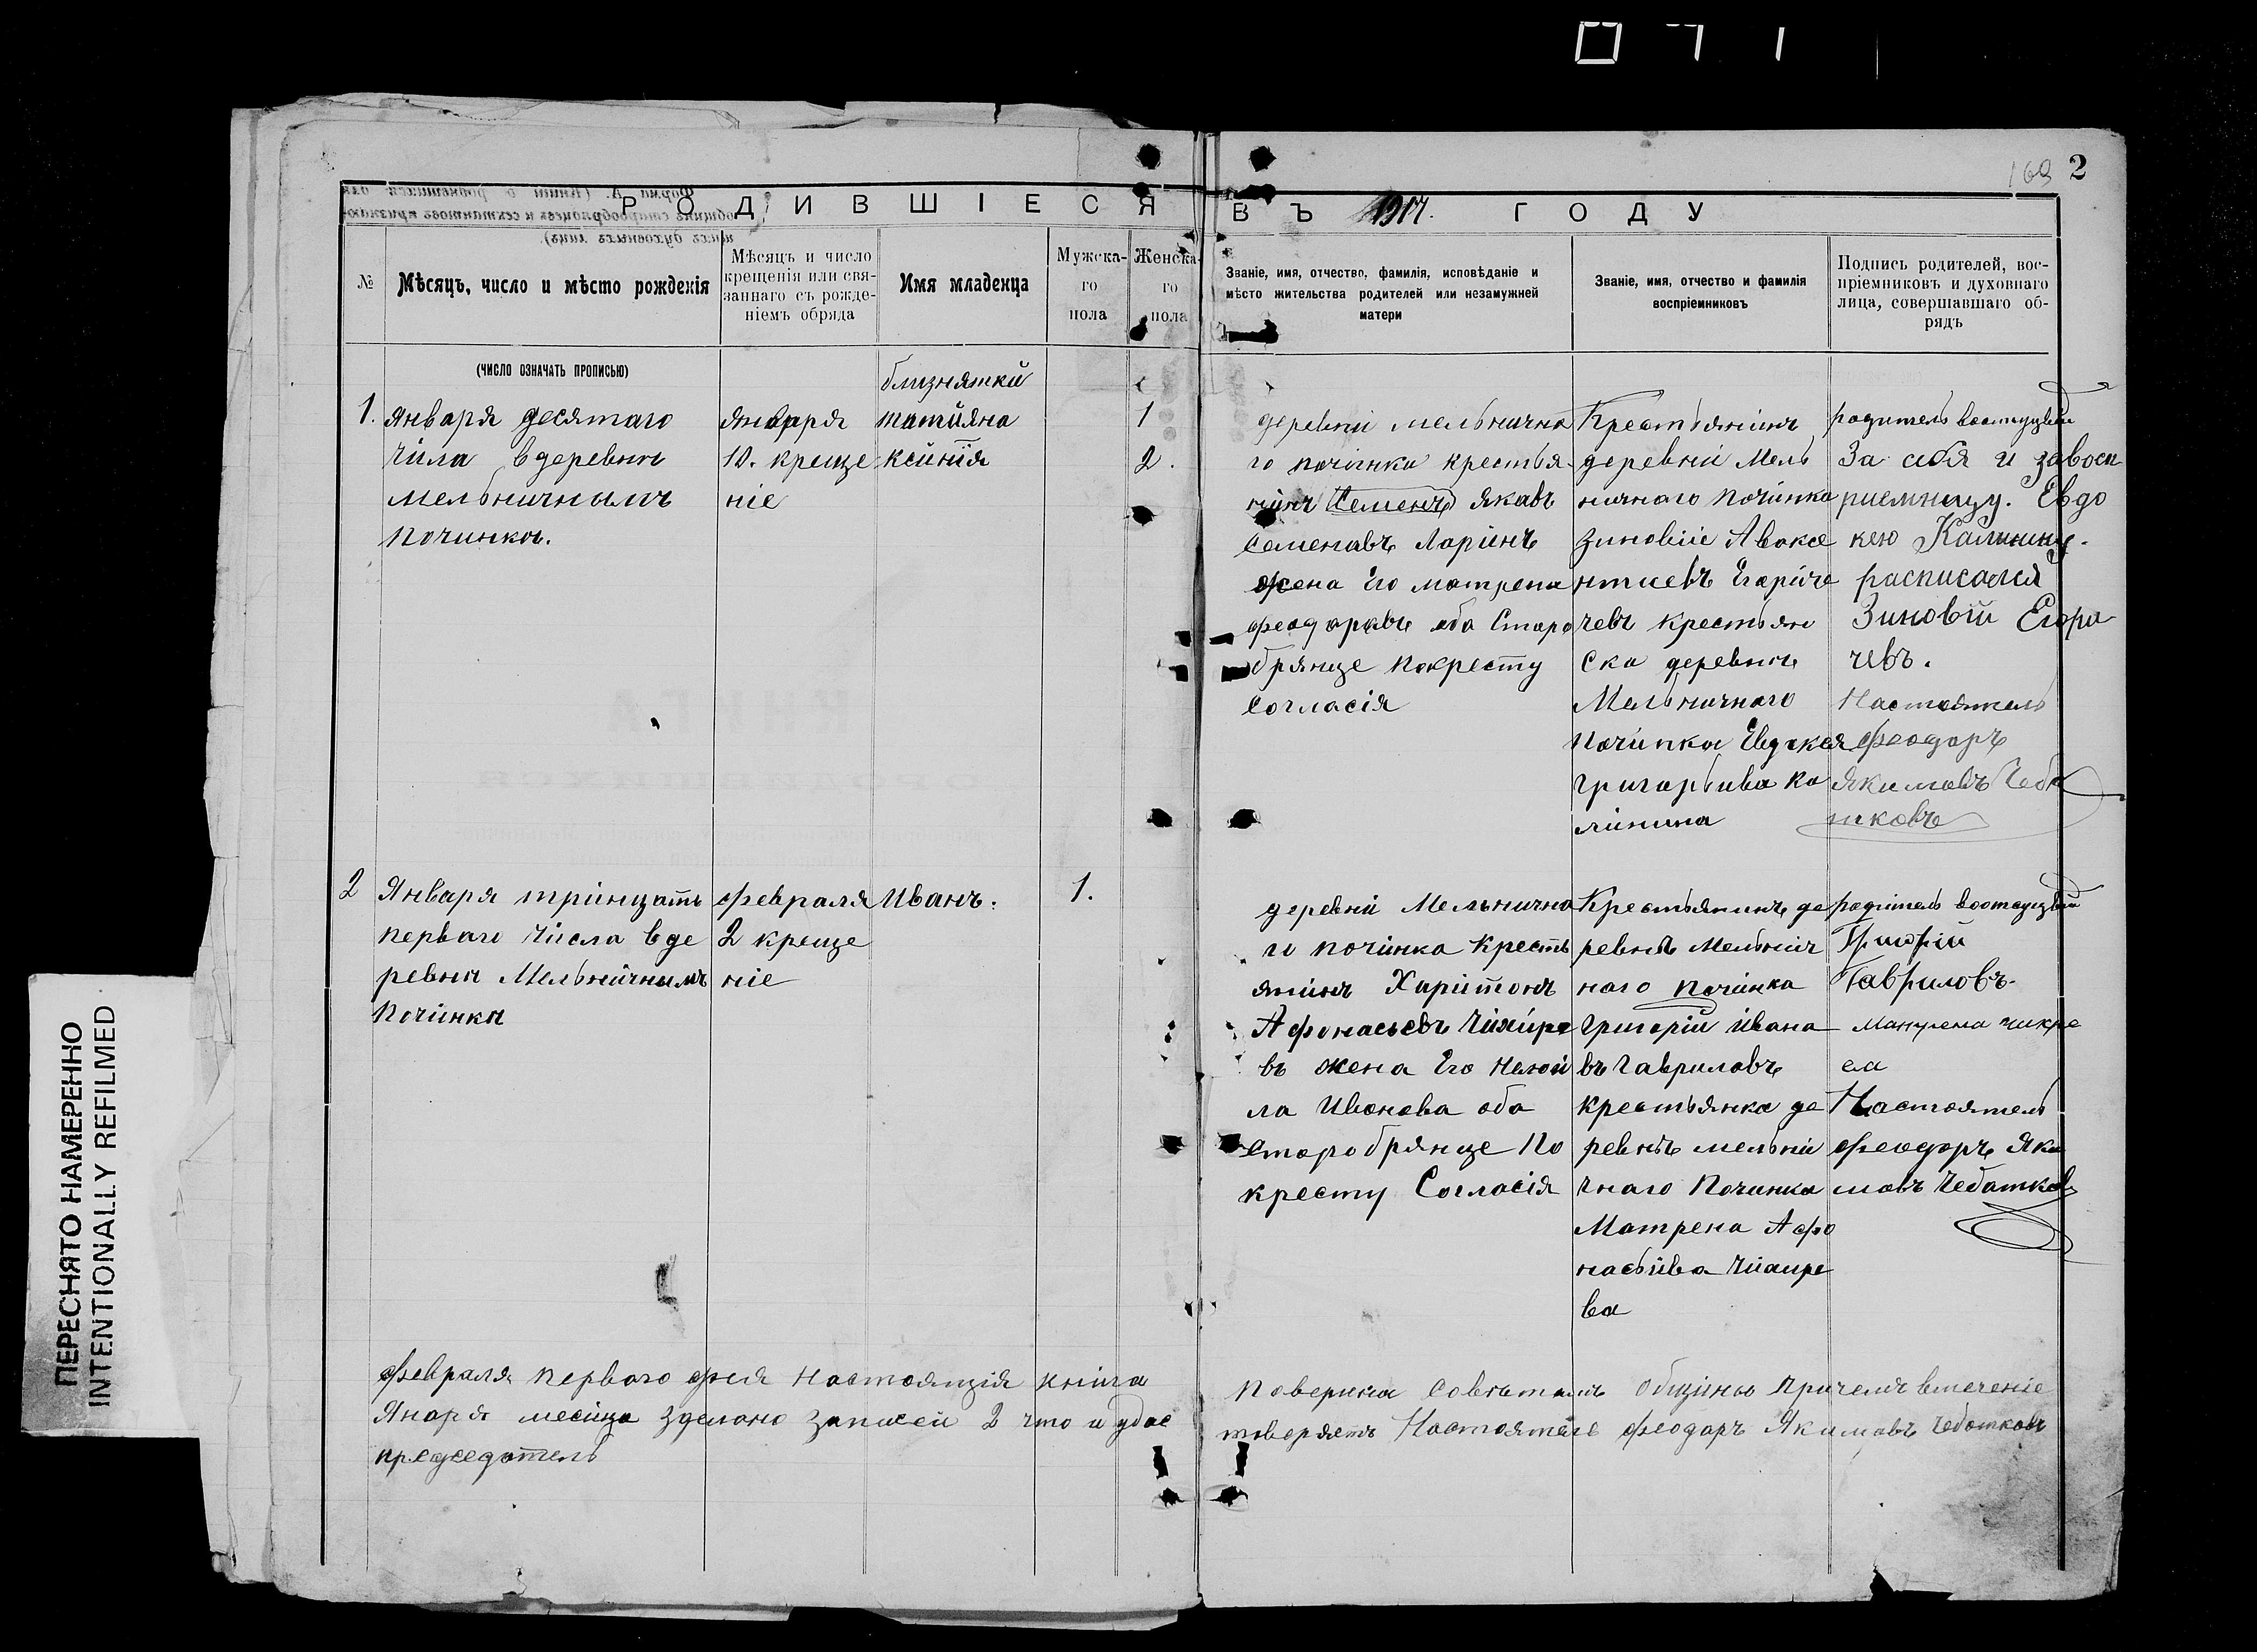 169 2
РОДИВШІЕСЯ ВЪ 1917. ГОДУ
№
Мѣсяцъ, число и мѣсто рожденія
Мѣсяцъ и число
крещенія или свя-
заннаго съ рожде-
ніемъ обряда
Имя младенца
Мужска-
го
пола
Женска-
го
пола
Званіе, имя, отчество, фамилія, исповѣданіе и
мѣсто жительства родителей или незамужней
матери
Званіе, имя, отчество и фамилія
воспріемниковъ
Подпись родителей, вос-
пріемниковъ и духовнаго
лица, совершавшаго об-
рядъ
(ЧИСЛО ОЗНАЧАТЬ ПРОПИСЬЮ)
1.
Января десятаго
числа вдеревни
мельничнымъ
Починки.
января
10. креще
ніе
близнятки
татияна
ксинїя
1
2.
деревни мельнична
го починка крестья
нинъ Семенъ Якавъ
Семенавъ Ларинъ
жена Его матрена
феодоравъ оба Старо
брянце покресту
Согласія
Крестьянинъ
деревни Мель
ничнаго починка
Зиновіе Авксе
нтиевъ Егориче
чевъ крестьян
ска деревни
Мельничнаго
Починка Евдокея
Григорьива Ка
линина
родитель воотсуцвии
За себя и завосп
риемницу. Евдо
кею Калинину.
расписался
Зиновій Егори
чевъ.
Настоятель
феодоръ
Якимовъ Чебо
тковъ
2
Января тринцать
перваго числа вде
ревни Мельничнымъ
Починки
февраля
2 креще
ніе
Иванъ.
1.
деревни Мельнична
го починка кресть
янинъ Харитонъ
Афонасьевъ Чихире
въ жена Его Неони
ла Иванова оба
Старобрянце По
кресту Согласія
Крестьянинъ де
ревнѣ Мельнич
наго починка
Григорій ивана
въ Гавриловъ
крестьянка де
ревнѣ мельни
чнаго Починка
Матрена Афо
насьива Чихире
ва
родитель воотсуцвии
Григорій
Гавриловъ.
Настоятель
феодоръ Яки
мовъ Чеботковъ
февраля перваго дня Настоящія книга поверина Советомъ общины причемъ втечение
Января месица зделано записей 2 что и удос товеряетъ Настоятель феодоръ Якимовъ Чеботковъ
председатель
ПЕРЕСНЯТО НАМЕРЕННО
INTENTIONALLY REFILMED